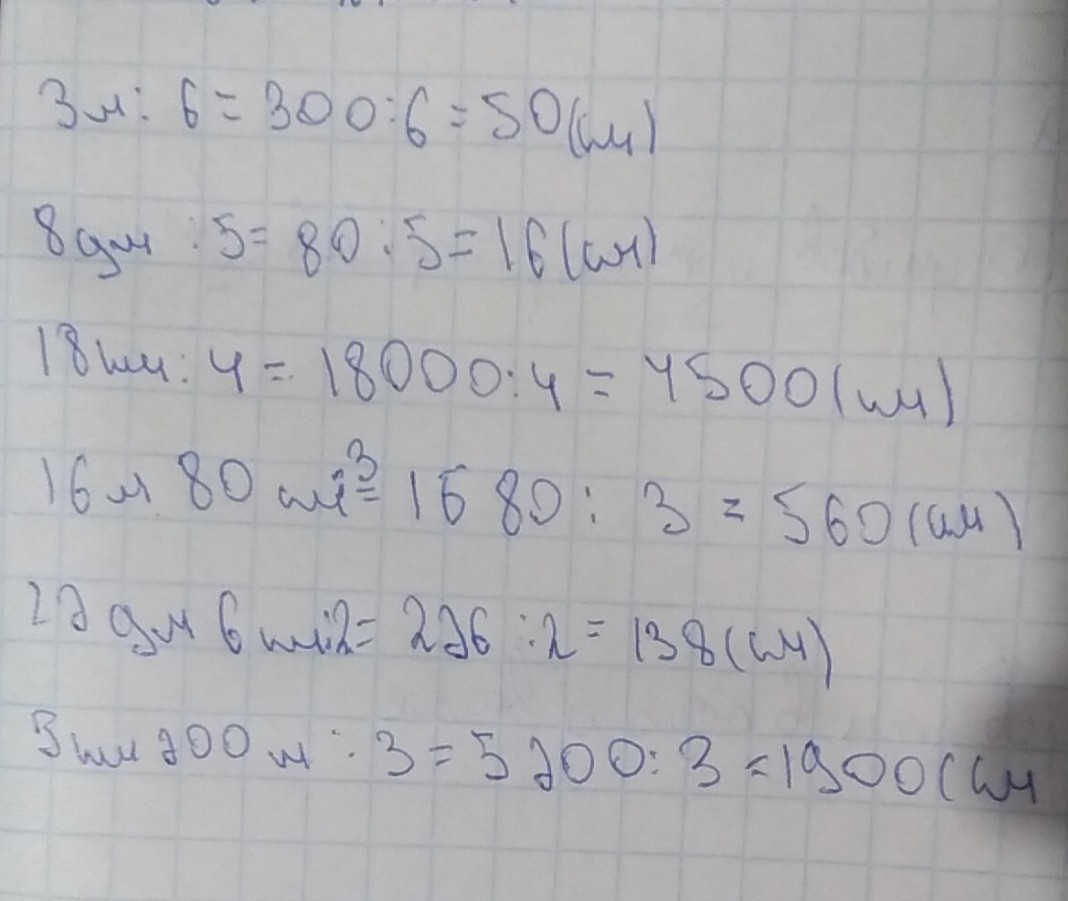 3м: 6 = 300:6 = 50(см)
8дм :5= 80:5=16(см)
18км:4= 18000:4 = 4500(см)
16м 80 см:3= 1680: 3 = 560(см)
27дм 6см:2= 276:2= 138(см)
5км 700м :3 = 5700:3=1900(см